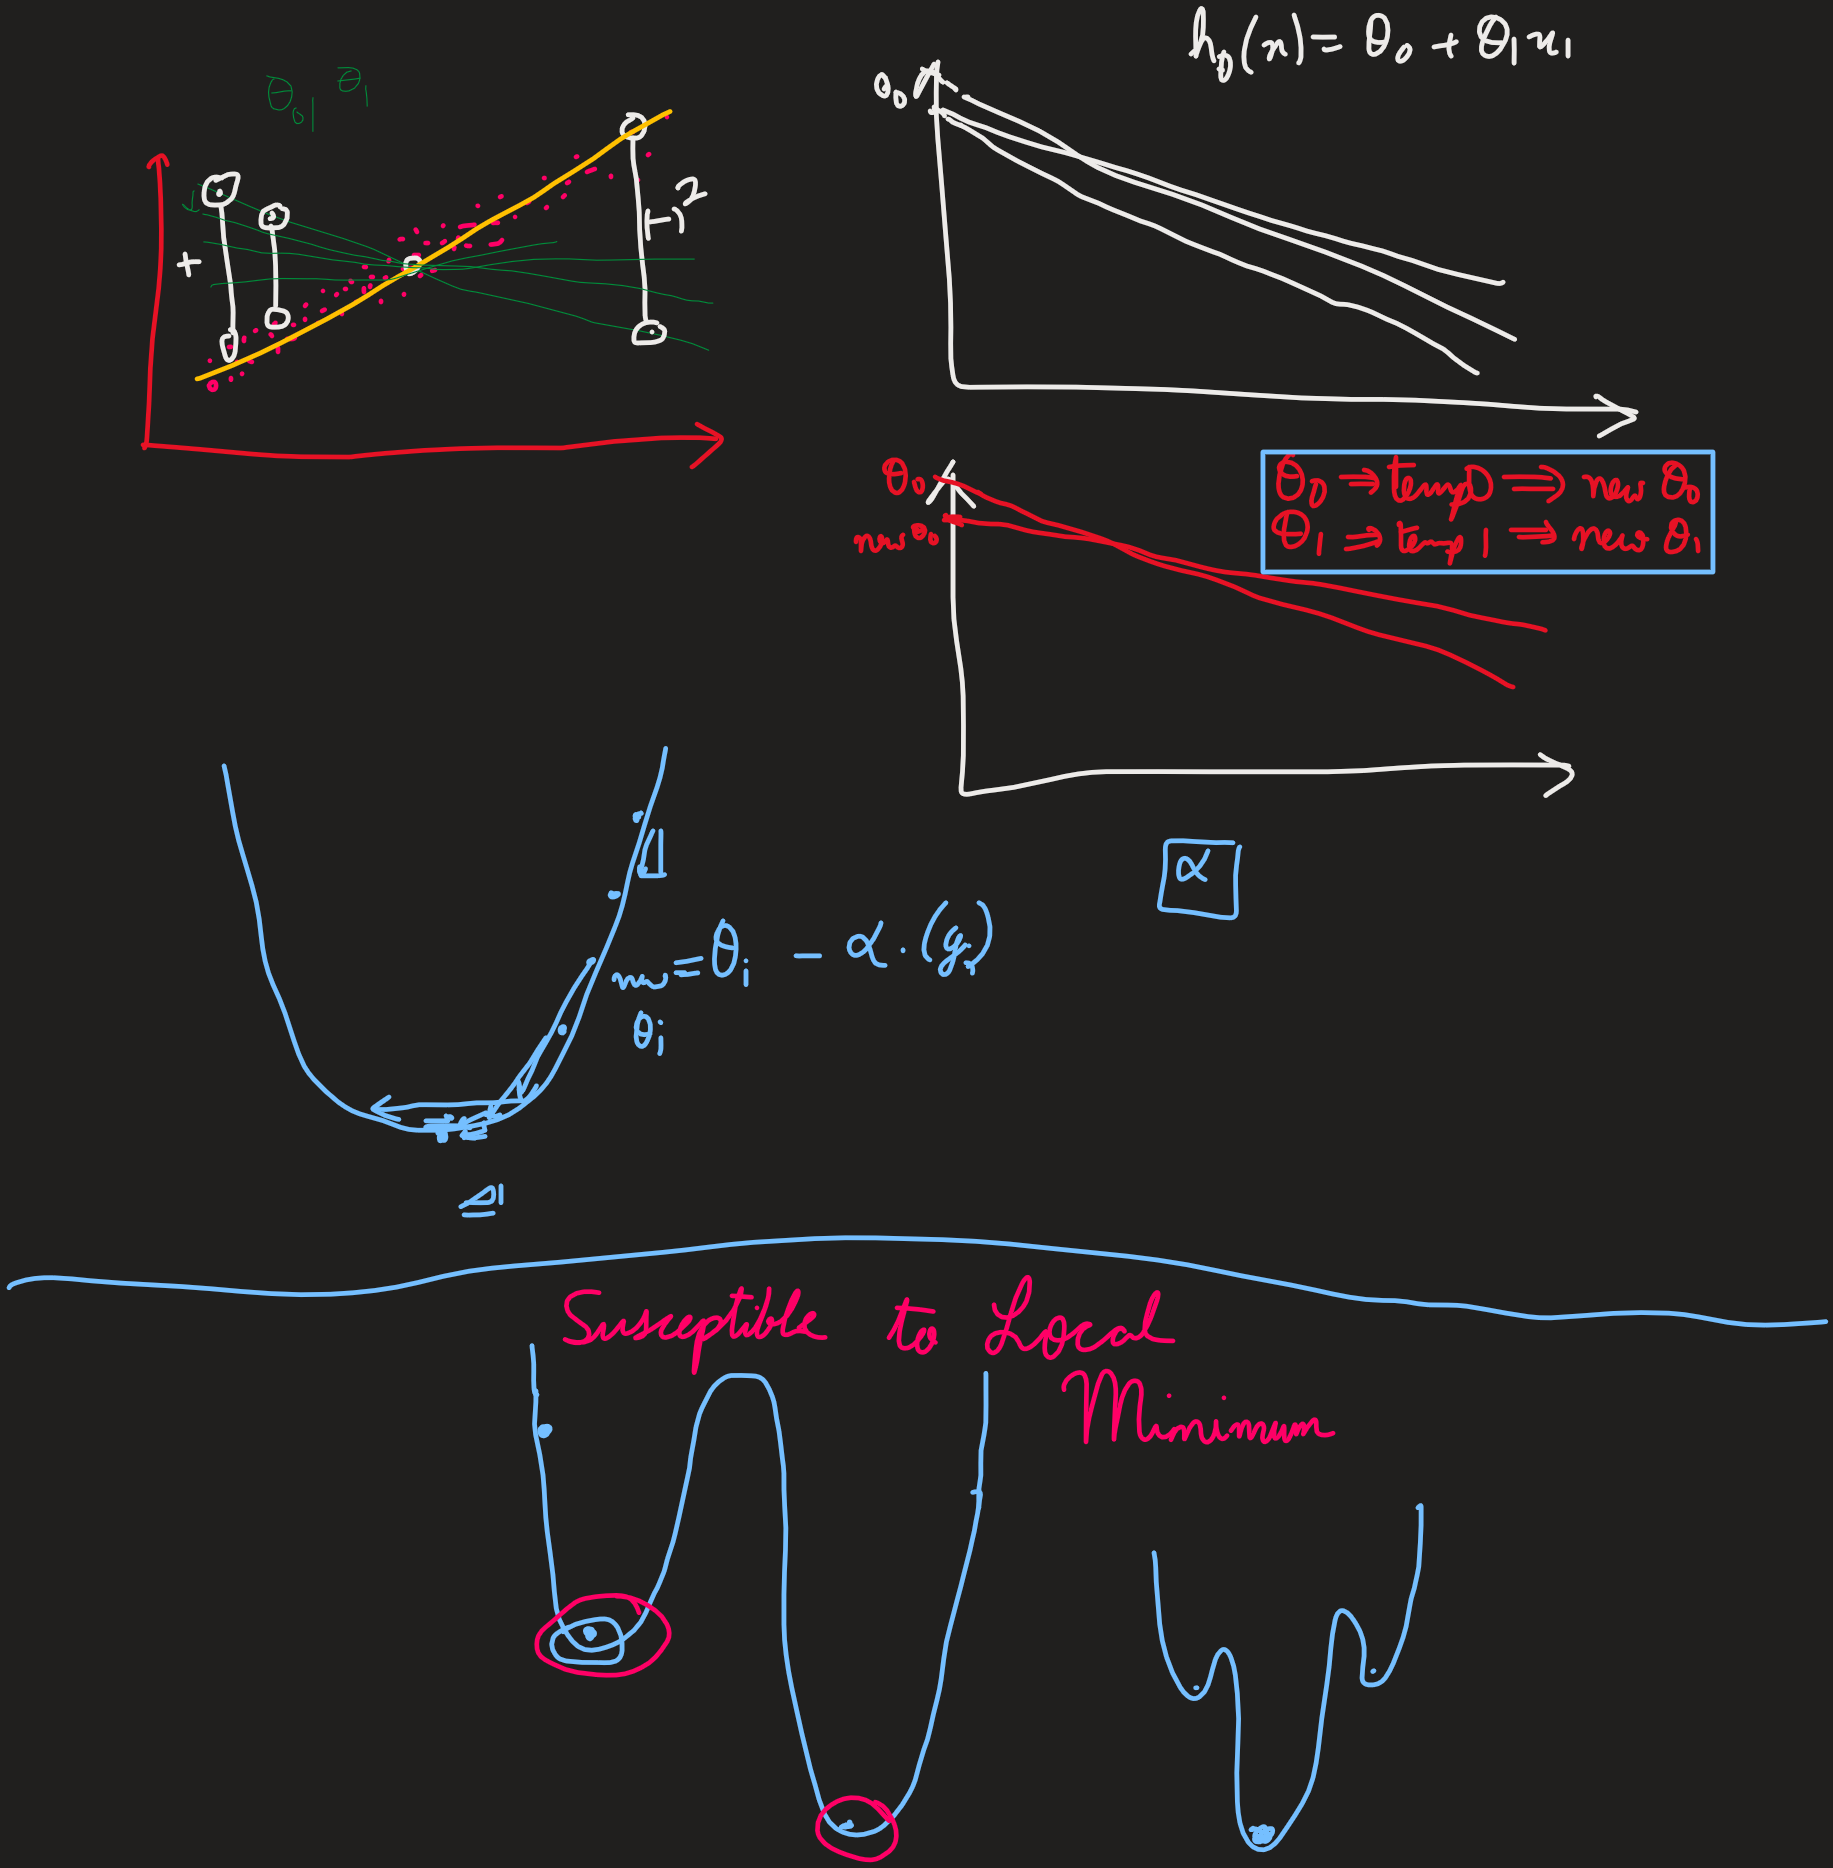 h_θ(x) = θ₀ + θ₁x₁
θ₀, θ₁
θ₀
+
( - )²
θ₀
new θ₀
θ₀ ⇒ temp0 ⇒ new θ₀
θ₁ ⇒ temp1 ⇒ new θ₁
α
new θi = θi − α · (gr)
Susceptible to Local
Minimum